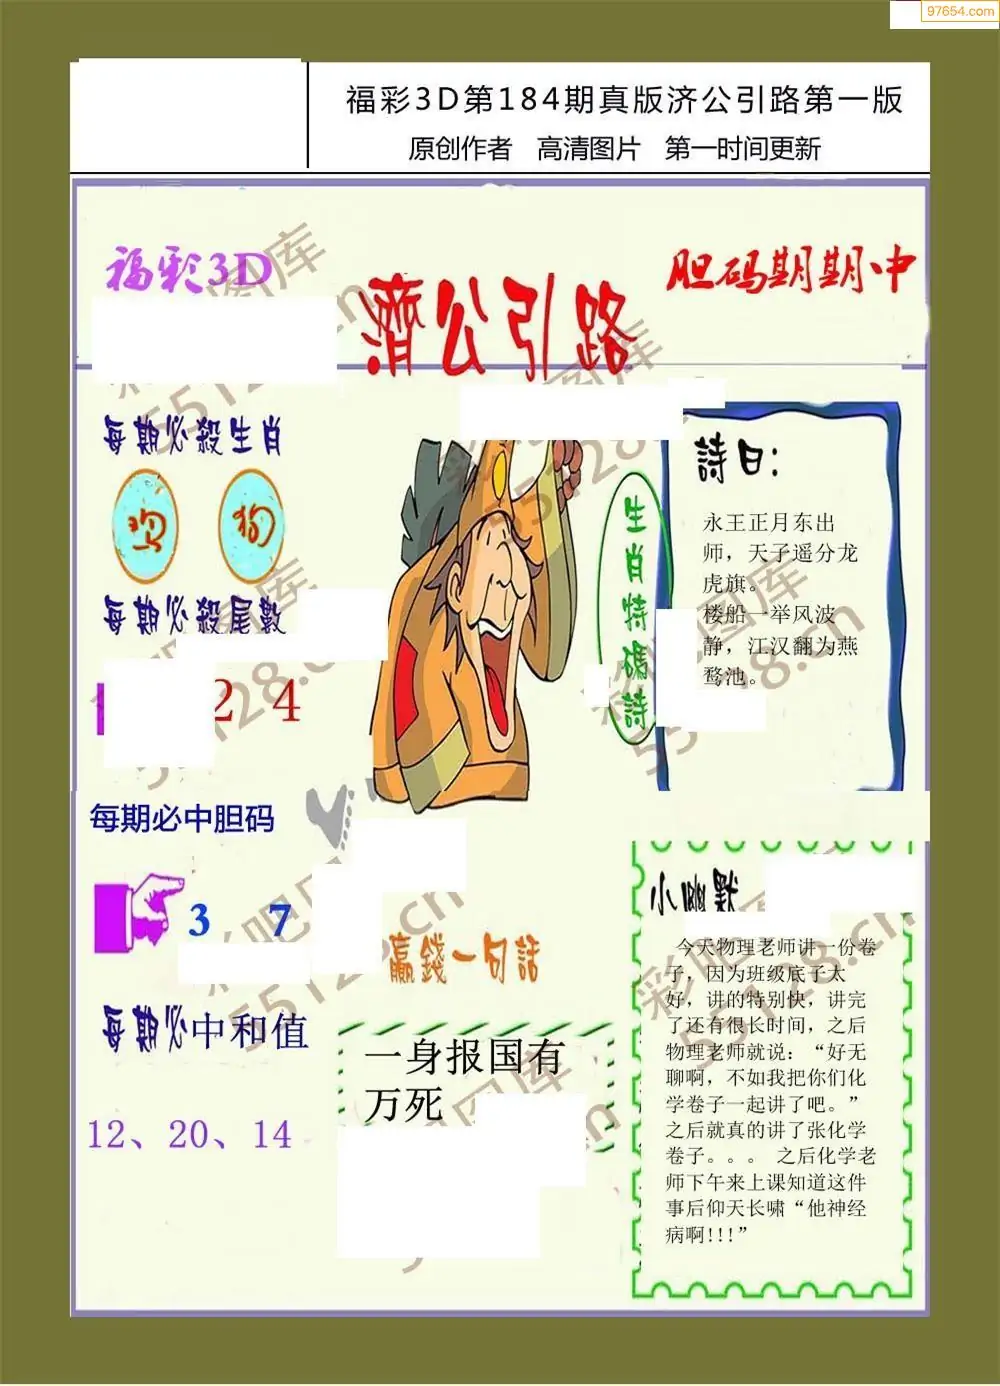 97654.com
福彩3D第184期真版济公引路第一版
原创作者 高清图片 第一时间更新
福彩3D
胆码期期中
濟公引路
每期必殺生肖
鸡 狗
每期必殺尾數
2 4
每期必中胆码
3 7
每期必中和值
12、20、14
生肖特碼詩
詩曰:
永王正月东出
师，天子遥分龙
虎旗。
楼船一举风波
静，江汉翻为燕
鹜池。
赢錢一句話
一身报国有
万死
小幽默
今天物理老师讲一份卷
子，因为班级底子太
好，讲的特别快，讲完
了还有很长时间，之后
物理老师就说：“好无
聊啊，不如我把你们化
学卷子一起讲了吧。”
之后就真的讲了张化学
卷子。。。 之后化学老
师下午来上课知道这件
事后仰天长啸“他神经
病啊!!!”
彩吧图库
55128.cn